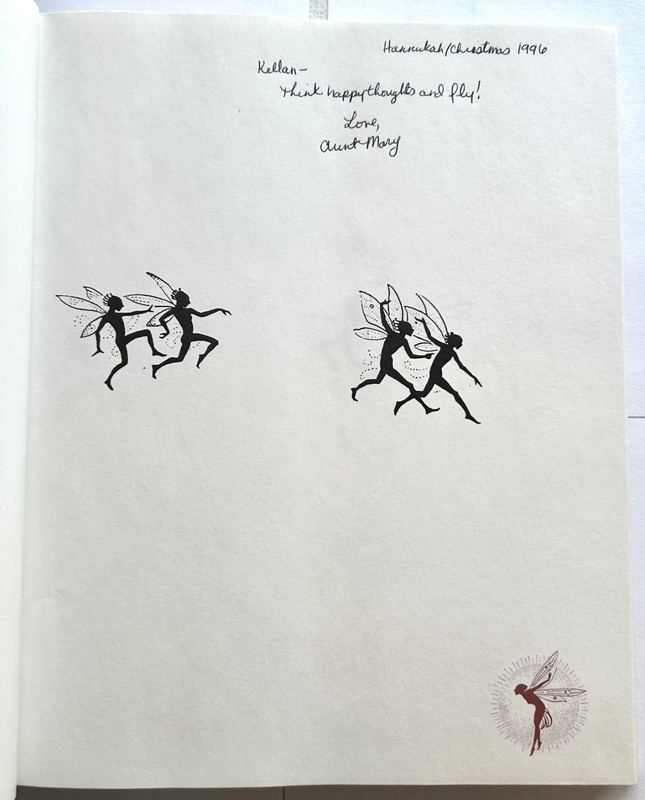 Hannukah/Christmas 1996
Kellan-
Think happy thoughts and fly!
Love,
Aunt Mary